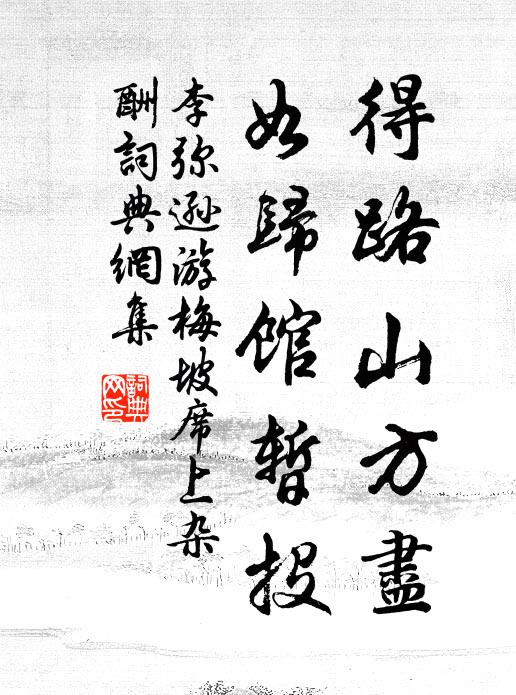 得路山方盡
如歸館暫投
李弥逊游梅坡席上杂
酬詞典網集
詞典
网印